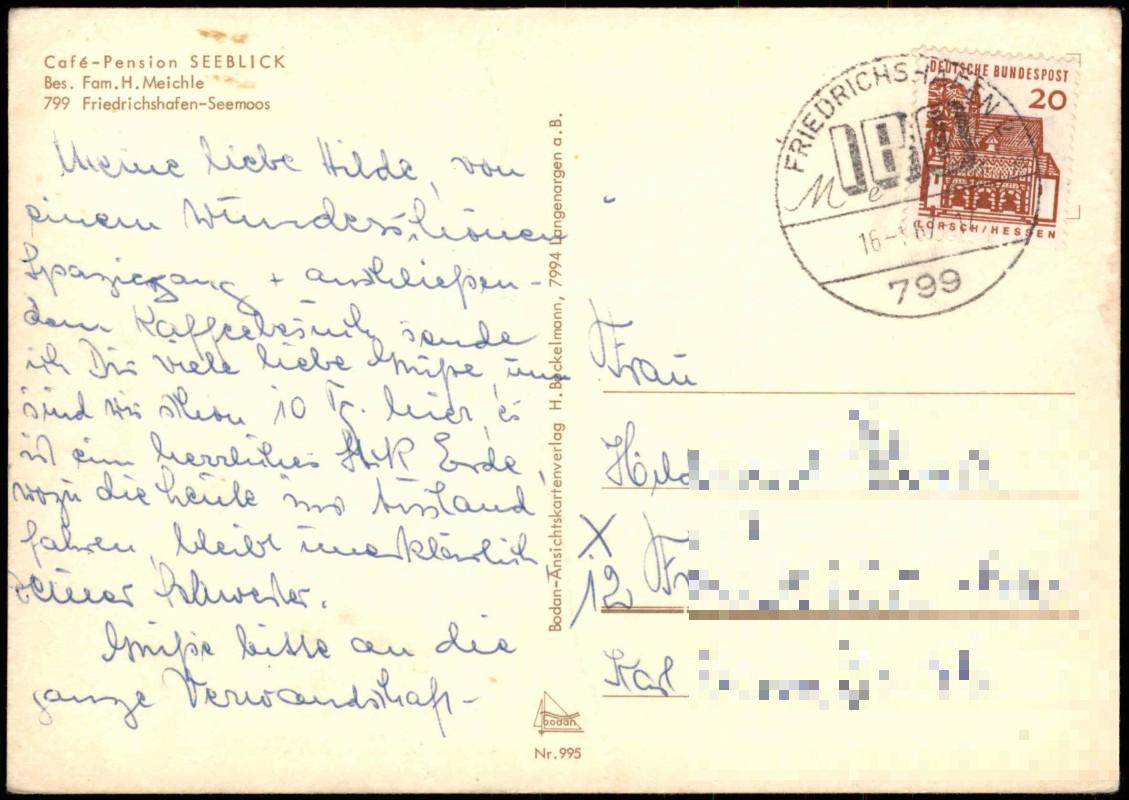 Café-Pension SEEBLICK
Bes. Fam. H. Meichle
799 Friedrichshafen-Seemoos
Meine liebe Hilde, von
einem wunderschönen
Spaziergang + anschließen-
dem Kaffeebesuch sende
ich Dir viele liebe Grüße, nun
sind wir schon 10 Tg. hier, es
ist ein herrliches Stck Erde,
wozu die Leute ins Ausland
fahren, bleibt unerklärlich,
Deiner Schwester.
Grüße bitte an die
ganze Verwandschaft
Bodan-Ansichtskartenverlag H. Bockelmann, 7994 Langenargen a. B.
bodan
Nr. 995
DEUTSCHE BUNDESPOST
20
LORSCH/HESSEN
FRIEDRICHSHAFEN
IBO
Me
16-
799
Frau
Hild
X
12 Fr